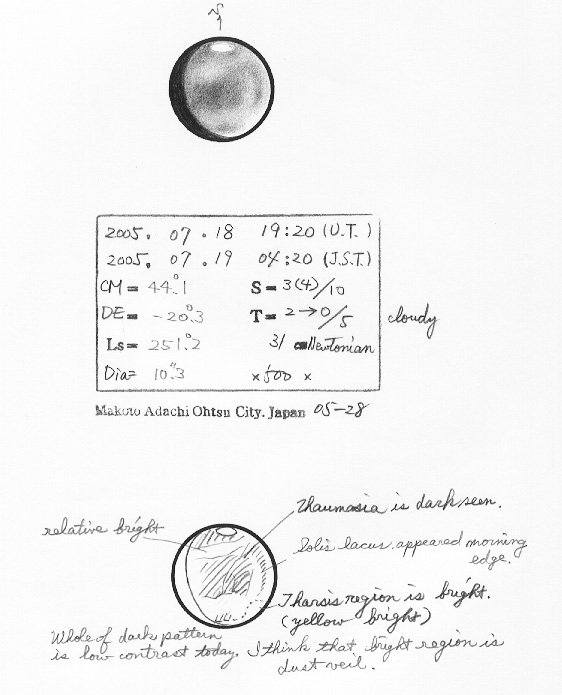 N
2005. 07. 18 19:20 (U.T.)
2005. 07. 19 04:20 (J.S.T)
CM = 44.°1 S = 3(4)/10
DE = -20.°3 T = 2→0/5 cloudy
Ls = 251.°2 31 cm Newtonian
Dia = 10."3 ×500 ×
Makoto Adachi Ohtsu City. Japan 05-28
Thaumasia is dark seen.
relative bright
Solis lacus appeared morning
edge.
Tharsis region is bright.
(yellow bright)
Whole of dark pattern
is low contrast today. I think that bright region is
dust veil.